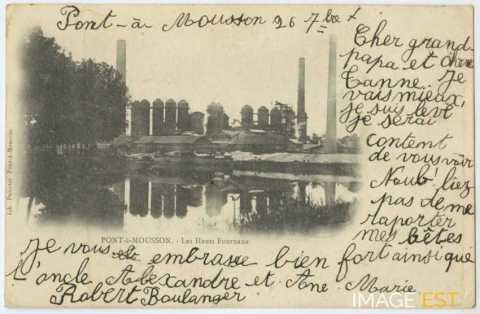 Pont-à-Mousson 26 7bre
Cher grand-
papa et chère
Tanne. Je
vais mieux,
je suis levé
je serai
content
de vous voir
Noub'liez
pas de me
raporter
mes bêtes
PONT-à-MOUSSON. - Les Hauts Fourneaux
Je vous embrasse bien fort ainsi que
l'oncle Alexandre et Ane Marie
Robert Boulanger
IMAGE EST.